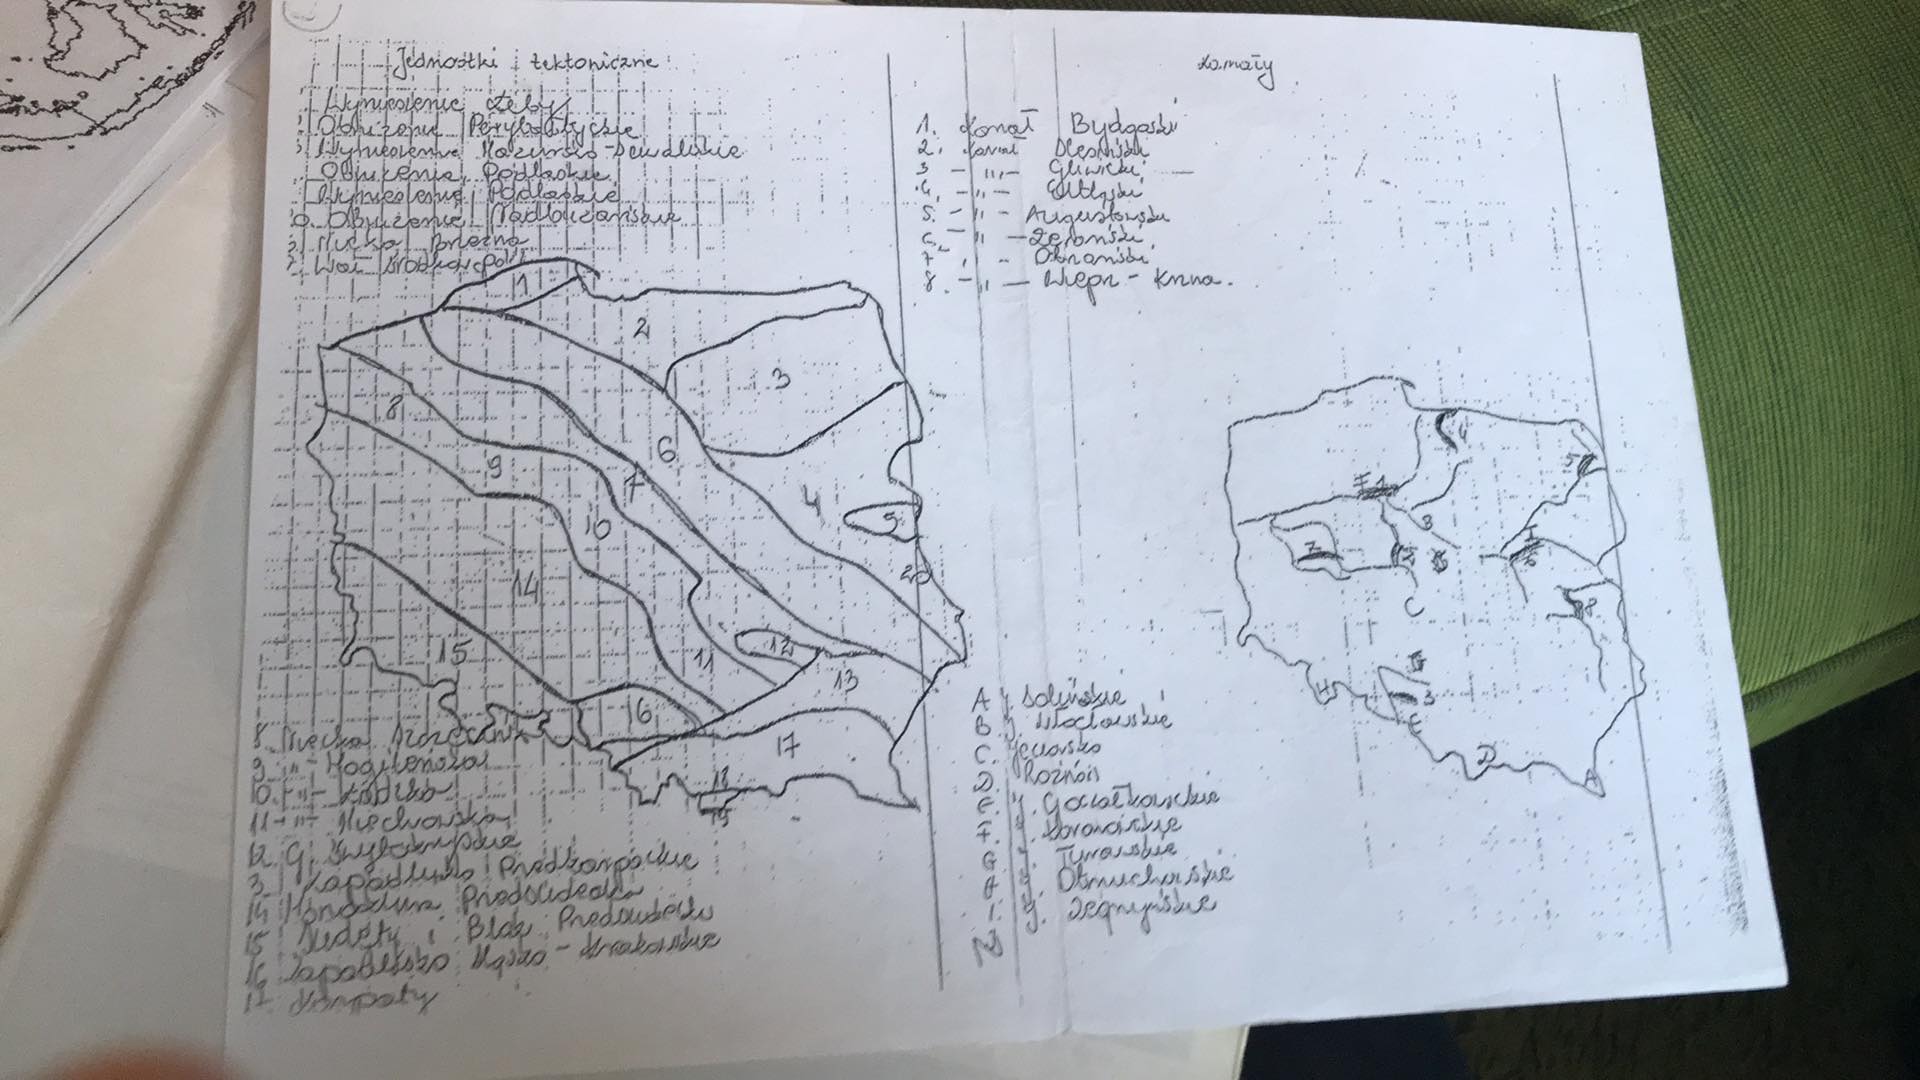 Jednostki tektoniczne
Wyniesienie Łeby
Obniżenie Perybałtyckie
Wyniesienie Mazursko-Suwalskie
Obniżenie Podlaskie
Wyniesienie Podlaskie
Obniżenie
Niecka Brzeżna
Wał
1
2
3
8
6
9
7
4
5
10
20
14
15
12
11
13
16
17
18
19
8 Niecka
9 -"- Mogileńska
10 -"- Łódzka
11 -"- Miechowska
12 G. Świętokrzyskie
3 Zapadlisko Przedkarpackie
14 Przedsudecka
15 Sudety i Blok Przedsudecki
16 Zapadlisko Śląsko-Krakowskie
17 Karpaty
Kanały
1. Kanał Bydgoski
2. Kanał Ślesiński
3 -"- Gliwicki
4. -"- Elbląski
5. -"- Augustowski
6. -"- Żerański
7 -"- Obrzański
8. -"- Wieprz-Krzna.
4
5
F 1
B
7
2
G
I
6
C
8
H
3
E
D
A
A J. Solińskie
B J. Włocławskie
C. Jeziorsko
D. Rożnów
E. J. Goczałkowickie
F. J. Koronowskie
G J. Turawskie
J. Otmuchowskie
I. J. Zegrzyńskie